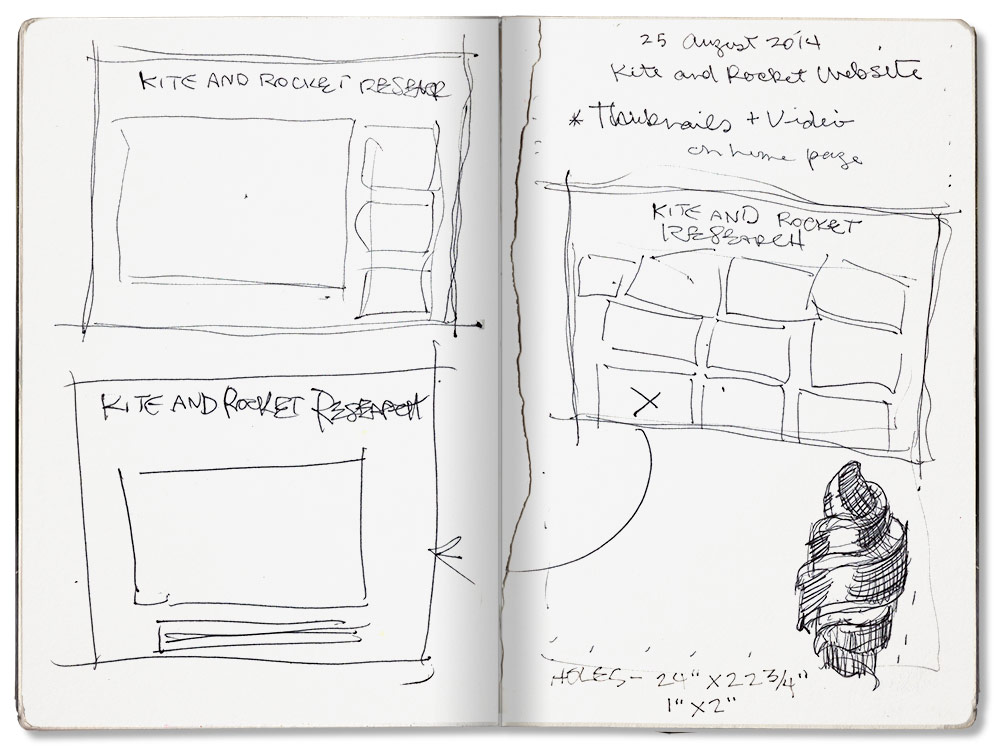 KITE AND ROCKET RESEARC
KITE AND ROCKET RESEARCH
25 August 2014
Kite and Rocket Website
* Thumbnails + Video
on home page
KITE AND ROCKET
RESEARCH
X
HOLES - 24" X 22 3/4"
1" X 2"